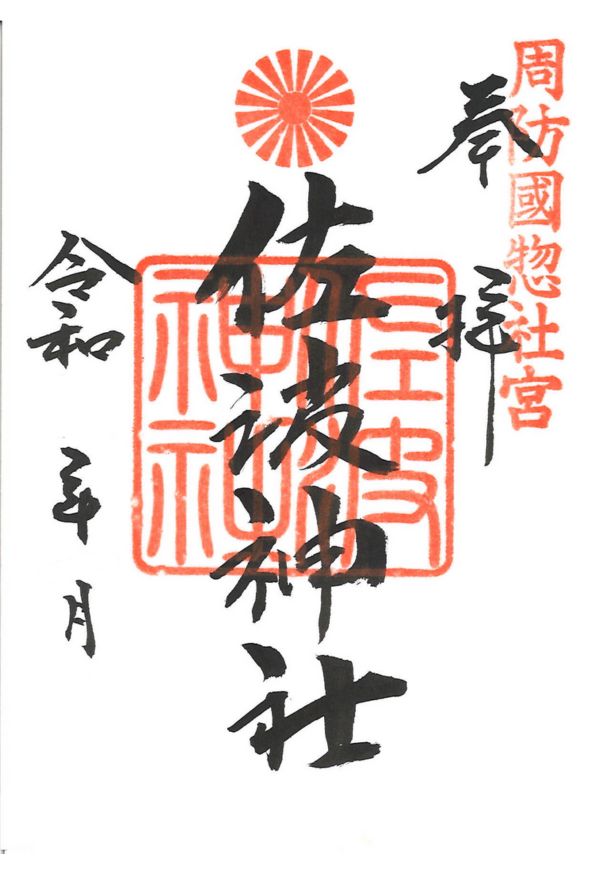 周防國惣社宮
奉拝
佐波神社
佐波神社
令和 年 月